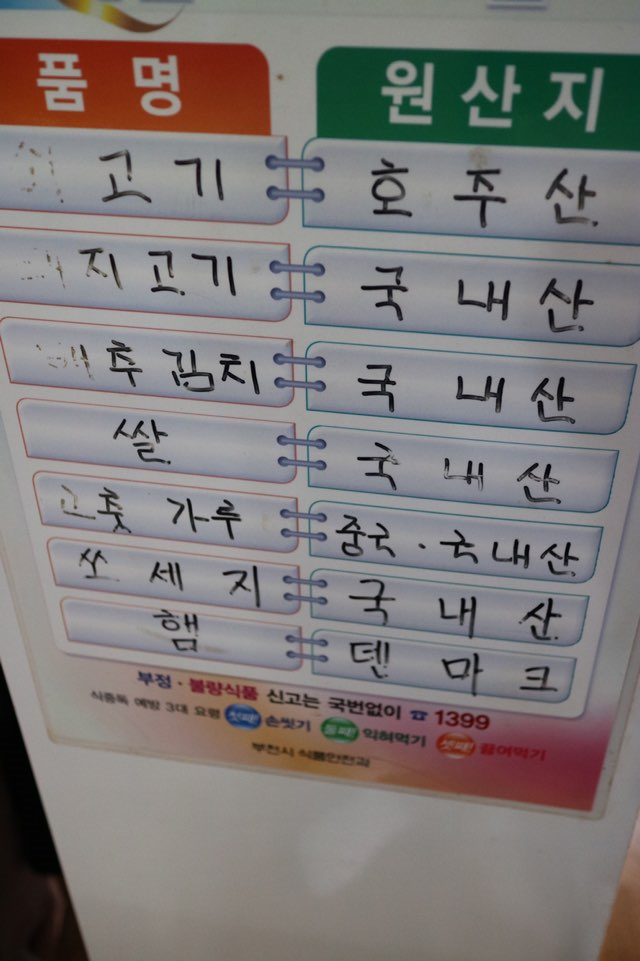 품명 원산지
고기 호주산
지고기 국내산
배추김치 국내산
쌀 국내산
고춧가루 중국·국내산
쏘세지 국내산
햄 덴마크
부정·불량식품 신고는 국번없이 ☎ 1399
식중독 예방 3대 요령 첫째! 손씻기 둘째! 익혀먹기 셋째! 끓여먹기
부천시 식품안전과